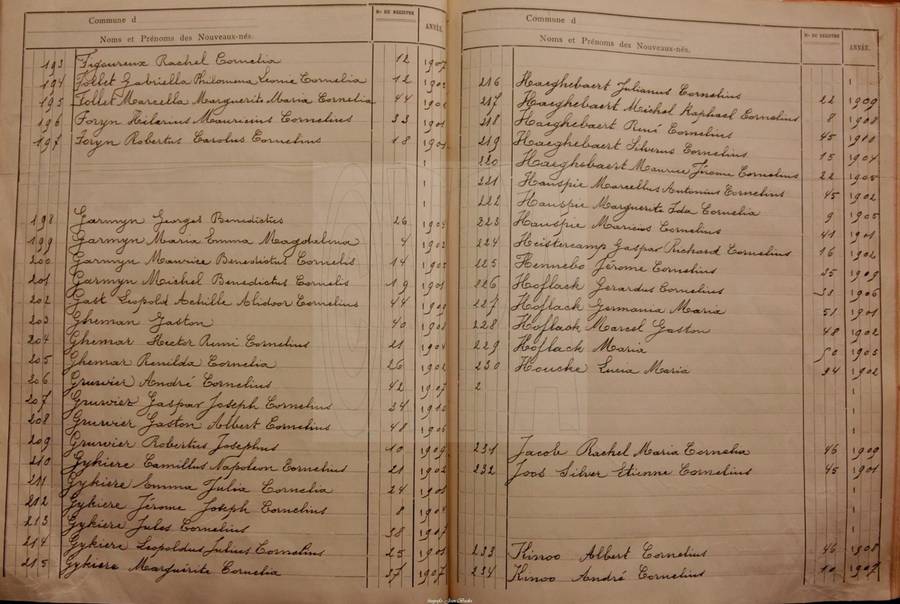 Commune d
Noms et Prénoms des Nouveaux-nés.
Nos DU REGISTRE
ANNÉE.
193 Figoureux Rachel Cornelia 12 1907
194 Follet Gabriella Philomena Leonie Cornelia 12
195 Follet Marcella Marguerite Maria Cornelia 44
196 Foryn Hilarius Mauricius Cornelius 33 1901
197 Foryn Robertus Carolus Cornelius 18
198 Garmyn Georges Benedictus 26
199 Garmyn Maria Emma Magdalena 4
200 Garmyn Maurice Benedictus Cornelis 14
201 Garmyn Michel Benedictus Cornelis 19 1901
202 Gast Leopold Achille Alidoor Cornelius 44
203 Gheman Gaston 40
204 Ghemar Hector Remi Cornelius 21
205 Ghemar Renilda Cornelia 26 1902
206 Gruwier André Cornelius 42 1907
207 Gruwier Gaspar Joseph Cornelius 24 1910
208 Gruwier Gaston Albert Cornelius 48
209 Gruwier Robertus Josephus 10 1909
210 Gykiere Camillus Napoleon Cornelius 21 1902
211 Gykiere Emma Julia Cornelia 24
212 Gykiere Jérome Joseph Cornelius 8
213 Gykiere Jules Cornelius 38 1907
214 Gykiere Leopoldus Julius Cornelius 25
215 Gykiere Marguérite Cornelia 37 1907
Commune d
Noms et Prénoms des Nouveaux-nés.
Nos DU REGISTRE
ANNÉE.
216 Haeghebaert Julianus Cornelius 22 1909
217 Haeghebaert Michel Raphael Cornelius 8 1908
218 Haeghebaert René Cornelius 45 1910
219 Haeghebaert Silverus Cornelius 15 1904
220 Haeghebaert Maurice Jérome Cornelius 22 1905
221 Hauspie Marcellus Antonius Cornelius 45 1902
222 Hauspie Marguerite Ida Cornelia 9 1905
223 Hauspie Maricus Cornelius 41 1901
224 Heistercamp Gaspar Richard Cornelius 16 1902
225 Hennebo Jérome Cornelius 35 1909
226 Hoflack Gerardus Cornelius 38 1906
227 Hoflack Germania Maria 51 1901
228 Hoflack Marcel Gaston 48 1902
229 Hoflack Maria 50 1905
230 Houcke Lucia Maria 24 1902
2
231 Jacob Rachel Maria Cornelia 46 1909
232 Joos Silver Etienne Cornelius 45 1901
233 Kinoo Albert Cornelius 46 1908
234 Kinoo André Cornelius 10 1907